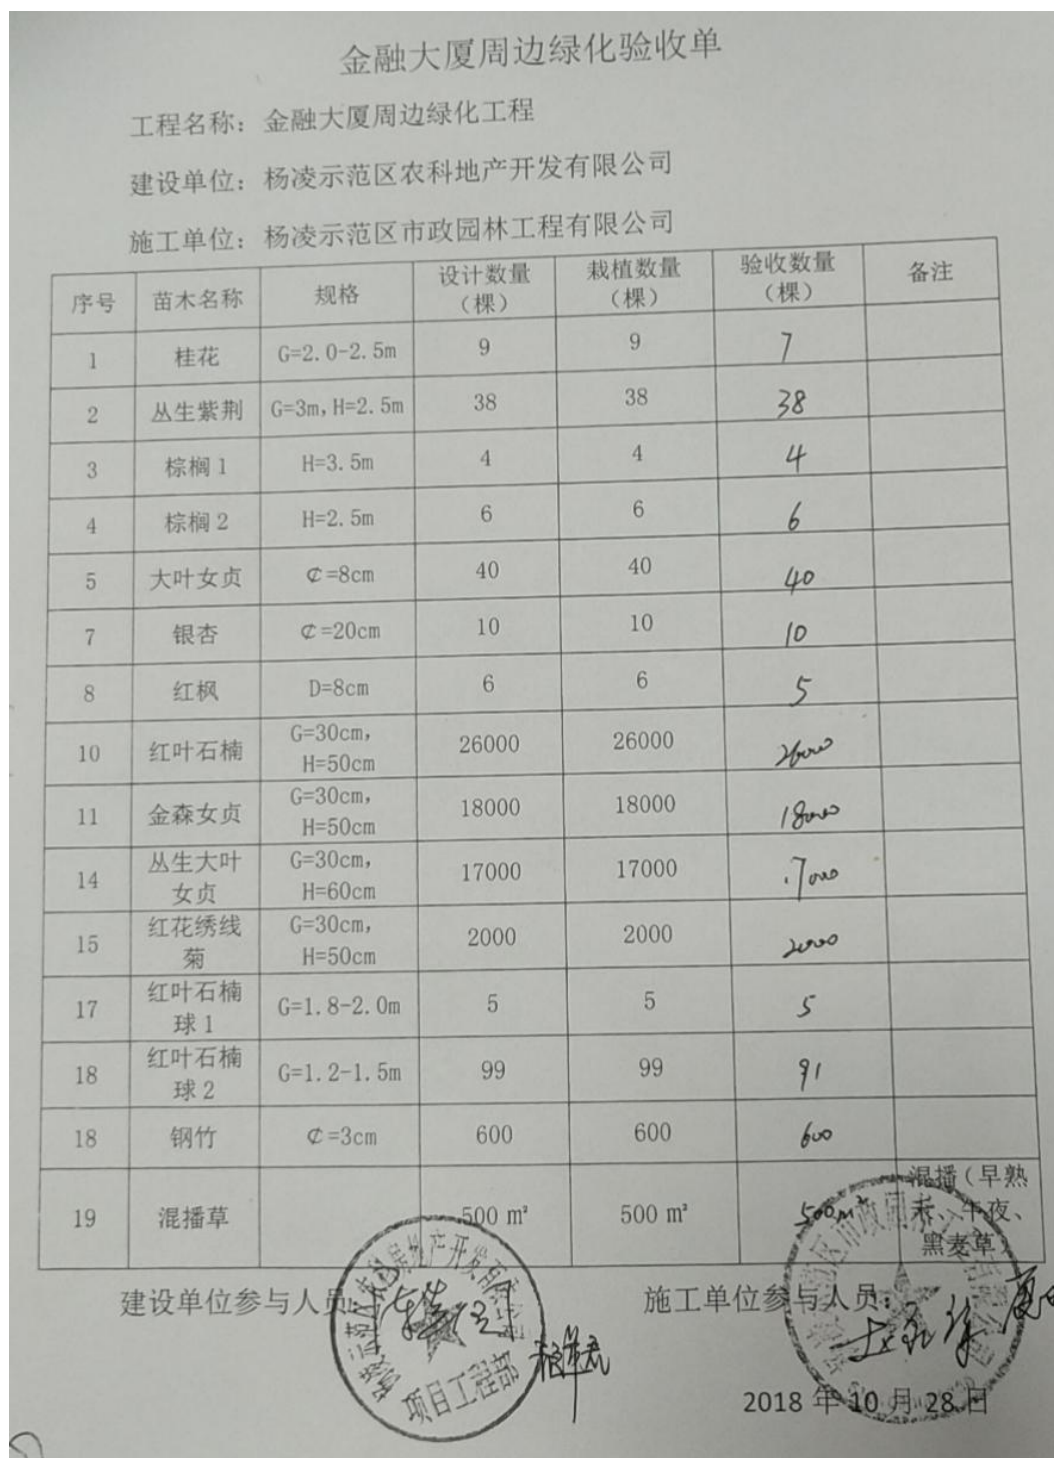 金融大厦周边绿化验收单
工程名称：金融大厦周边绿化工程
建设单位：杨凌示范区农科地产开发有限公司
施工单位：杨凌示范区市政园林工程有限公司
序号 苗木名称 规格 设计数量（棵） 栽植数量（棵） 验收数量（棵） 备注
1 桂花 G=2.0-2.5m 9 9 7
2 丛生紫荆 G=3m,H=2.5m 38 38 38
3 棕榈1 H=3.5m 4 4 4
4 棕榈2 H=2.5m 6 6 6
5 大叶女贞 ₵=8cm 40 40 40
7 银杏 ₵=20cm 10 10 10
8 红枫 D=8cm 6 6 5
10 红叶石楠 G=30cm，H=50cm 26000 26000 26000
11 金森女贞 G=30cm，H=50cm 18000 18000 18000
14 丛生大叶女贞 G=30cm，H=60cm 17000 17000 17000
15 红花绣线菊 G=30cm，H=50cm 2000 2000 2000
17 红叶石楠球1 G=1.8-2.0m 5 5 5
18 红叶石楠球2 G=1.2-1.5m 99 99 91
18 钢竹 ₵=3cm 600 600 600
19 混播草 500 m² 500 m² 500m² 混播（早熟禾、午夜、黑麦草）
建设单位参与人员
施工单位参与人员：
项目工程部
2018年10月28日